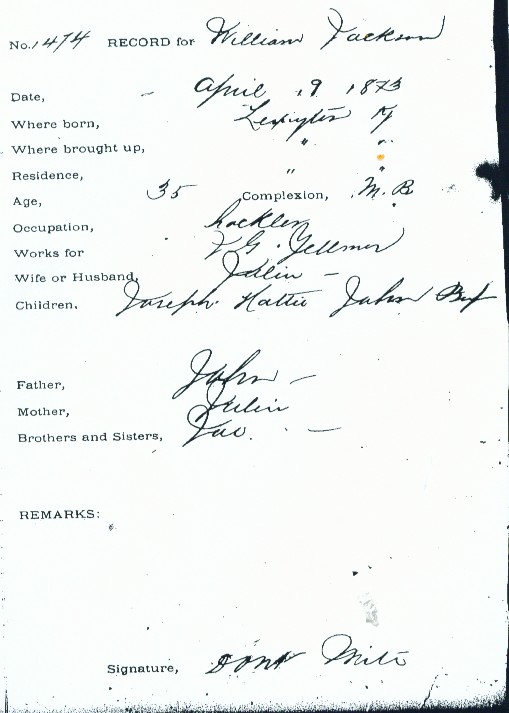 No. 1474 RECORD for William Jackson
Date, April 19 1873
Where born, Lexington Ky
Where brought up, " "
Residence, " "
Age, 35 Complexion, M. B.
Occupation, hackler
Works for
Wife or Husband, Julia -
Children, Joseph Hattie John
Father, John -
Mother, Julia
Brothers and Sisters, Jno. -
REMARKS:
Signature, Dont Write